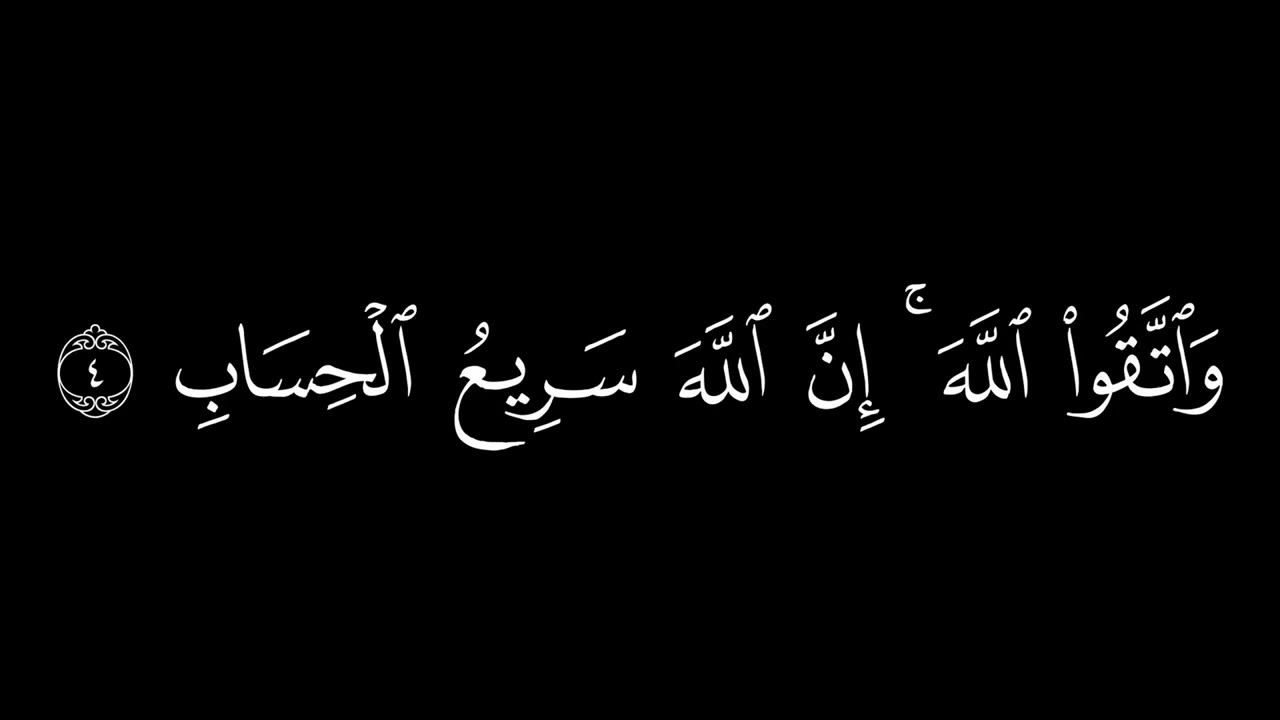 وَٱتَّقُوا۟ ٱللَّهَ ۚ إِنَّ ٱللَّهَ سَرِيعُ ٱلْحِسَابِ ٤